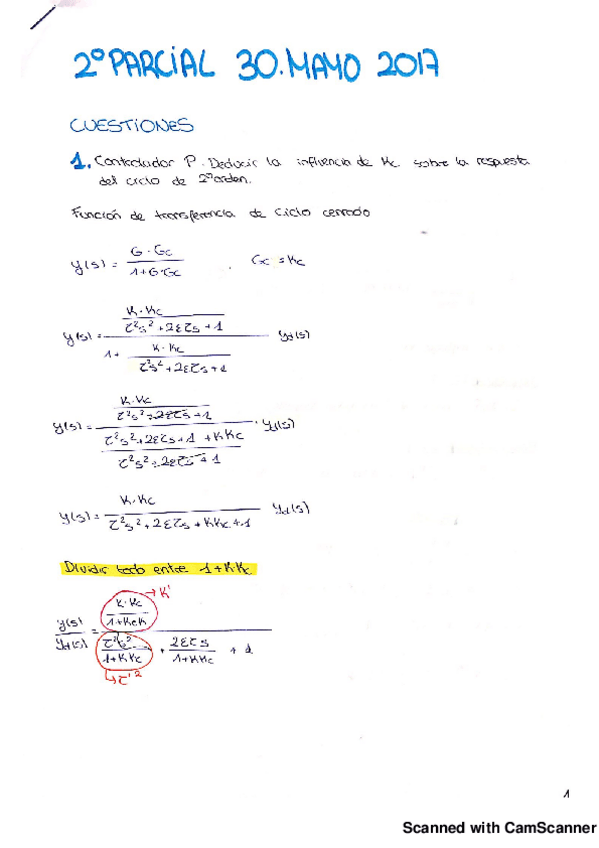 2º PARCIAL 30.MAYO 2017
CUESTIONES
1. Controlador P. Deducir la influencia de Kc sobre la respuesta
del ciclo de 2º orden.
Función de transferencia de ciclo cerrado
y(s) = G·Gc / 1+G·Gc . Gc = Kc
y(s) = (K·Kc / τ²s²+2ετs+1) / (1+ K·Kc / τ²s²+2ετs+1) yd(s)
y(s) = (K·Kc / τ²s²+2ετs+1) / (τ²s²+2ετs+1+KKc / τ²s²+2ετs+1) · yd(s)
y(s) = K·Kc / τ²s²+2ετs+KKc+1 yd(s)
Dividir todo entre 1+K·Kc
y(s) / yd(s) = (K·Kc / 1+KcK) / (τ²s² / 1+KKc + 2ετs / 1+KKc + 1)
→ K'
↳ τ'²
1
Scanned with CamScanner